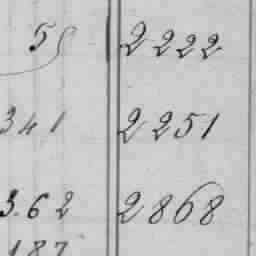 5 2222
341 2251
3.62 2868
187